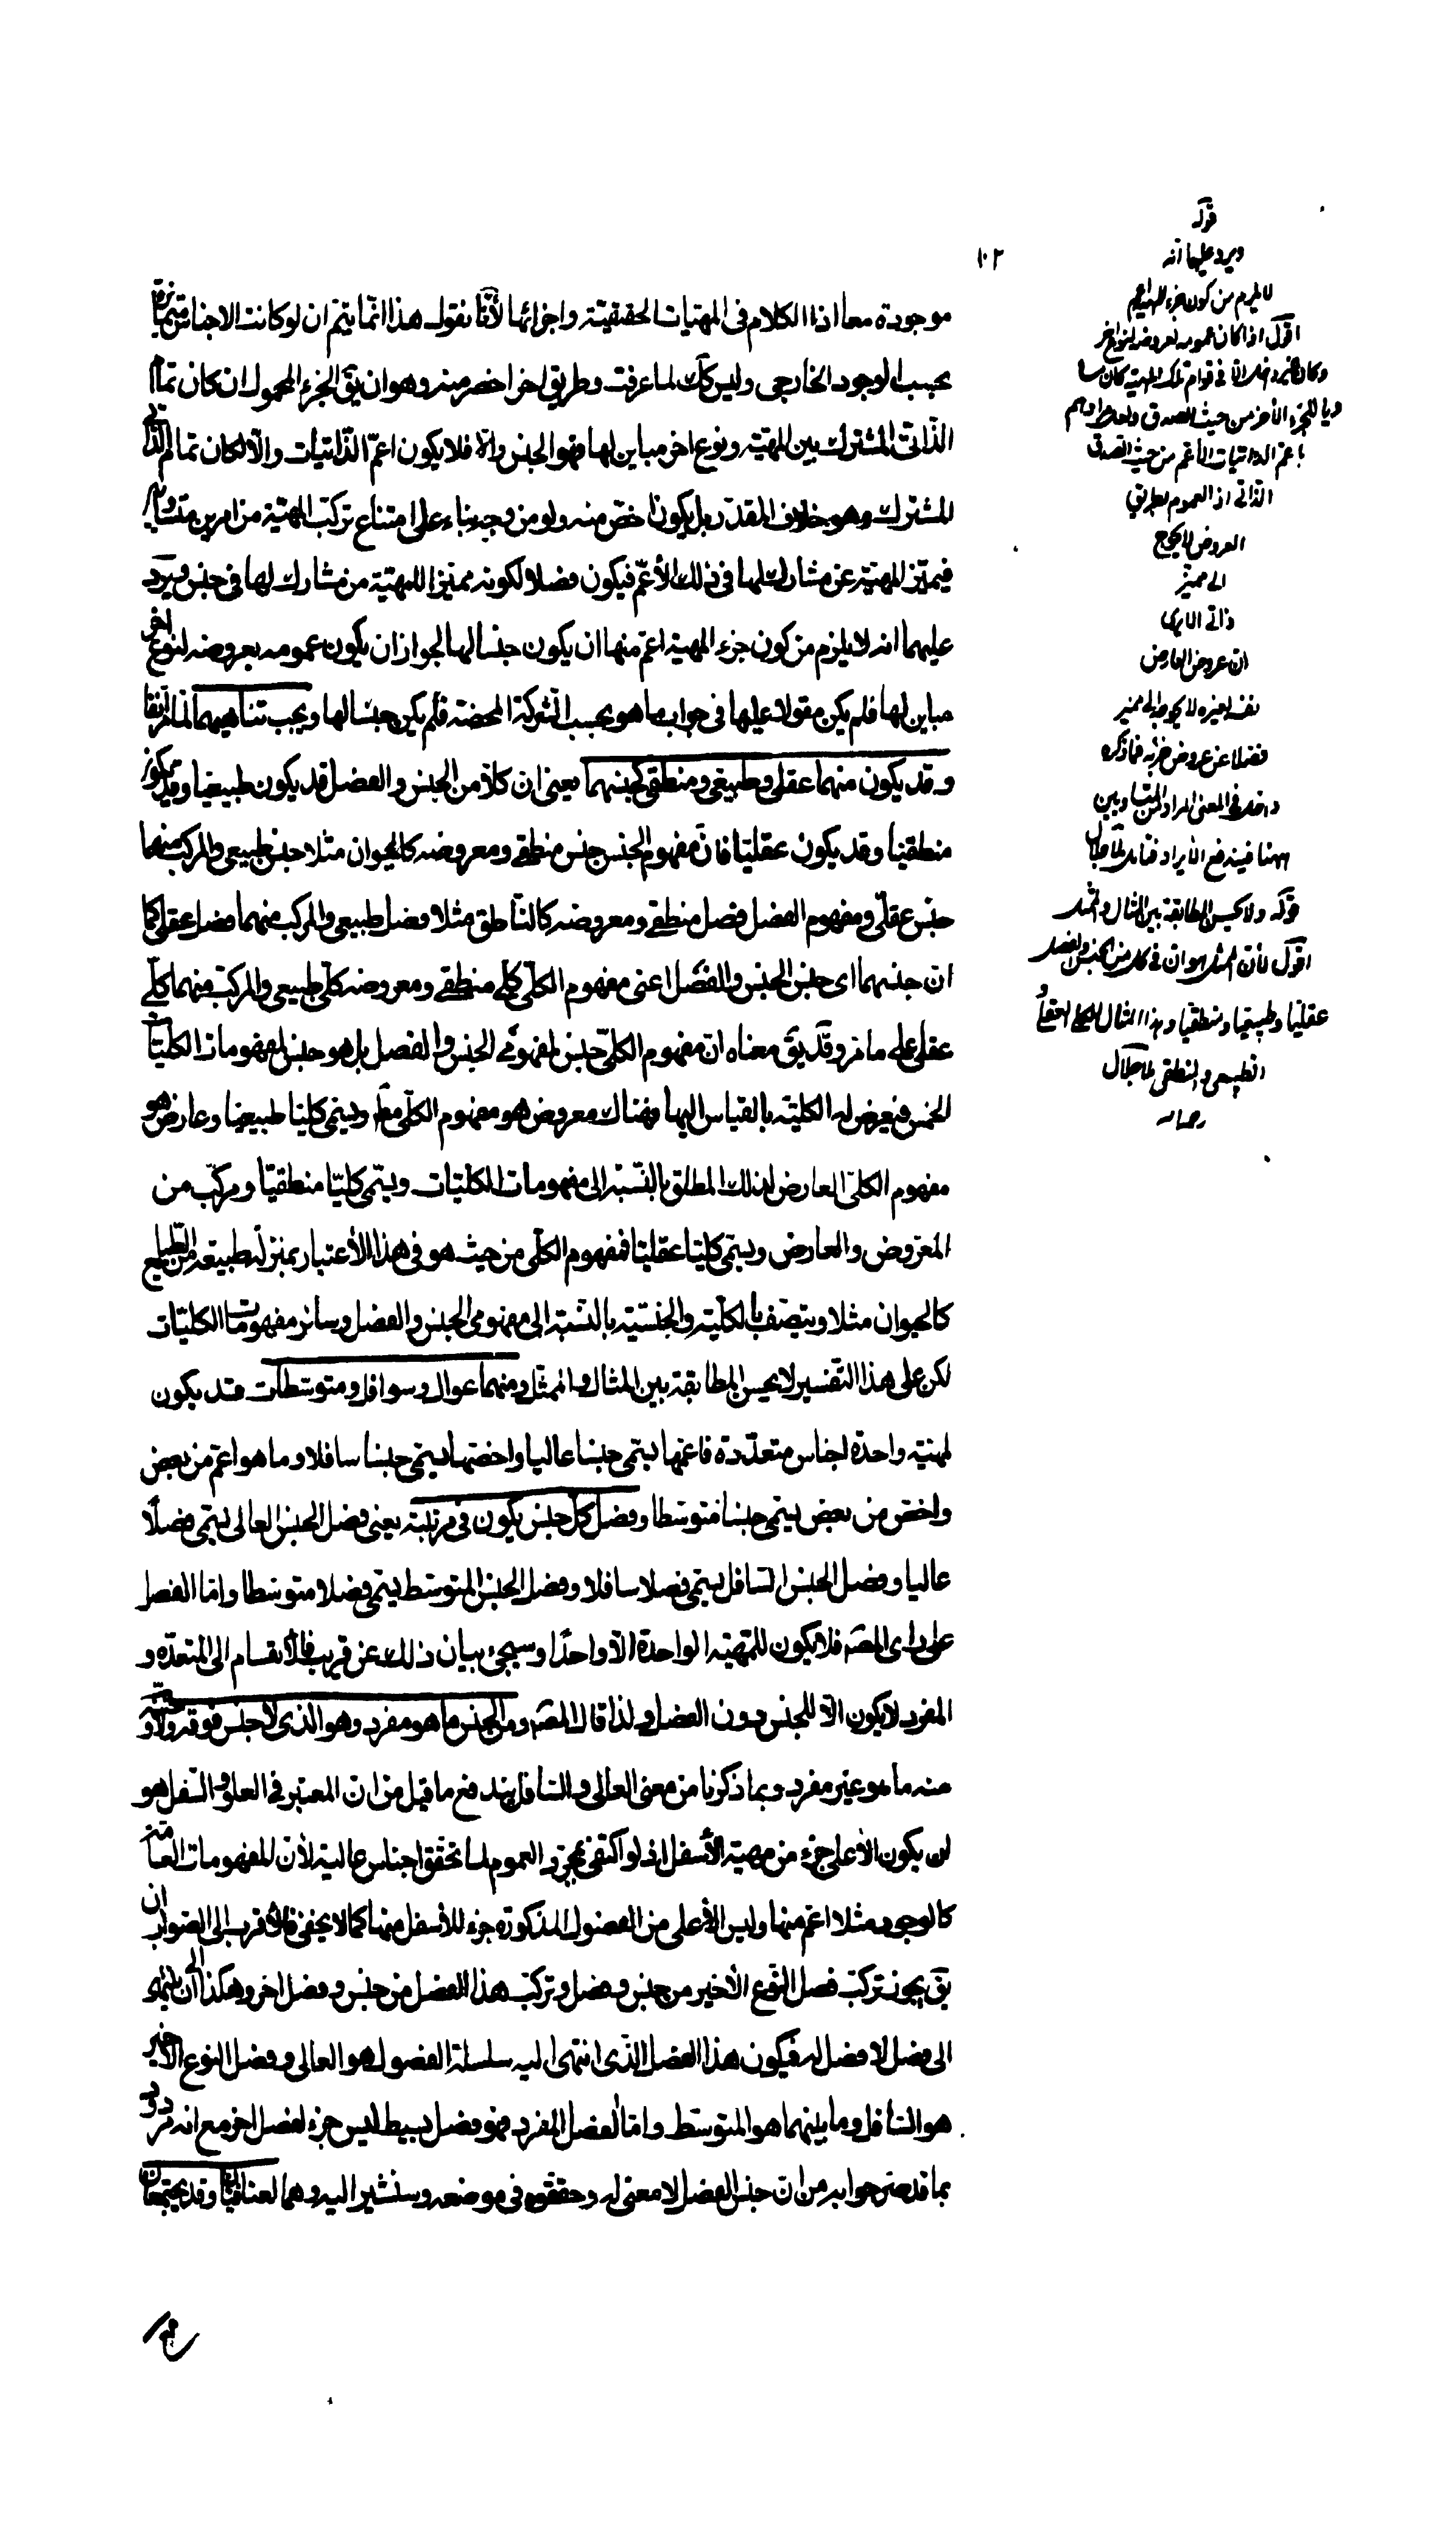 ١٠٢
موجودة معا اذا الكلام فى المهيات الحقيقية واجزائها لأنّا نقول هذا انّما يتمّ ان لو كانت الاجناس متمايزة
بحسب الوجود الخارجى وليس كك لما عرفت وطريق اخر اخصر منه وهو ان يق الجزء المحمول ان كان تمام
الذّاتى المشترك بين المهيّة ونوع اخر مباين لها فهو الجنس والّا فلا يكون اعمّ الذّاتيات والّا لكان تمام الذّاتى
المشترك وهو خلاف المقدّر بل يكون اخصّ منه ولو من وجه بناء على امتناع تركّب المهيّة من امرين متساويين
فيميّز المهيّة عن مشارك لها فى ذلك الأعمّ فيكون فصلا لكونه مميّزا للمهيّة من مشارك لها فى جنس ويرد
عليهما انه لا يلزم من كون جزء المهية اعمّ منها ان يكون جنسا لها لجواز ان يكون عمومه بعروضه لنوع اخر
مباين لها فلم يكن مقولا عليها فى جواب ما هو بحسب الشركة المحضة فلم يكن جنسا لها ويجب تناهيهما لما مرّ انفا
وقد يكون منهما عقلى وطبيعى ومنطقى كجنسهما يعنى ان كلّا من الجنس والفصل قد يكون طبيعيا وقد يكون
منطقيا وقد يكون عقليّا فانّ مفهوم الجنس جنس منطقى ومعروضه كالحيوان مثلا جنس طبيعى والمركب منهما
جنس عقلّى ومفهوم الفصل فصل منطقى ومعروضه كالنّاطق مثلا فصل طبيعى والمركب منهما فصل عقلى كما
ان جنسهما اى جنس الجنس والفصل اعنى مفهوم الكلّى كلّى منطقى ومعروضه كلّى طبيعى والمركب منهما كلّى
عقلى على ما مرّ وقد يق معناه انّ مفهوم الكلّى جنس لمفهومى الجنس والفصل بل هو جنس لمفهومات الكليّات
الخمس فيعرض له الكليّة بالقياس اليها فهناك معروض هو مفهوم الكلّى مط ويسمّى كليّا طبيعيا وعارض هو
مفهوم الكلّى العارض لذلك المطلق بالنّسبة الى مفهومات الكليّات ويسمّى كليّا منطقيّا ومركّب من
المعروض والعارض ويسمّى كليّا عقليّا فمفهوم الكلّى من حيث هو فى هذا الأعتبار بمنزلة طبيعة من الطبايع
كالحيوان مثلا ويتّصف بالكليّة والجنسيّة بالنّسبة الى مفهومى الجنس والفصل وسائر مفهومات الكليّات
لكن على هذا التفسير لا يحسن المطابقة بين المثال والممثّل ومنهما عوال وسوافل ومتوسّطات قد يكون
لمهيّة واحدة اجناس متعدّدة فاعمّها يسمّى جنسا عاليا واخصّها يسمّى جنسا سافلا وما هو اعمّ من بعض
واخصّ من بعض يسمّى جنسا متوسّطا وفصل كلّ جنس يكون فى مرتبته يعنى فصل الجنس العالى يسمّى فصلا
عاليا وفصل الجنس السافل يسمّى فصلا سافلا وفصل الجنس المتوسّط يسمّى فصلا متوسّطا وامّا الفصل
على راى المصّ فلا يكون للمهيّة الواحدة الّا واحدا وسيجىء بيان ذلك عن قريب فالأنقسام الى المتعدّد و
المفرد لا يكون الّا للجنس دون الفصل ولذا قال المصّ ومن الجنس ما هو مفرد وهو الذى لا جنس فوقه ولا تحته و
منه ما هو غير مفرد وبما ذكرنا من معنى العالى والسّافل يندفع ما قيل من انّ المعتبر فى العلو والسّفل هو
ان يكون الأعلى جزء من مهيّة الأسفل اذ لو اكتفى بمجرّد العموم لما تحقّق اجناس عالية لأن المفهومات العامّة
كالوجود مثلا اعمّ منها وليس الأعلى من الفصول المذكورة جزء للأسفل منها كما لا يخفى فالأقرب الى الصّواب ان
يق يجوز تركّب فصل النّوع الأخير من جنس وفصل وتركّب هذا الفصل من جنس وفصل اخر وهكذا الى ان ينتهى
الى فصل لا فصل له فيكون هذا الفصل الّذى انتهى اليه سلسلة الفصول هو العالى وفصل النوع الأخير
هو السّافل وما بينهما هو المتوسّط وامّا الفصل المفرد فهو فصل بسيط ليس جزء لفصل اخر مع انه مردود
بما قد صرّحوا به من انّ جنس الفصل لا معنى له وحقّقوه فى موضعه وسنشير اليه وهما اضافيّان وقد يجتمعان
قوله
ويرد عليهما انه
لا يلزم من كون جزء المهية اعم
اقول اذا كان عمومه بعروضه لنوع اخر
الذاتى اذ العموم بطريق
العروض لا يحوج
الى مميّز
ذاتى
ان عروض العارض
نفسه لغيره لا يحوجه الى مميز
فضلا عن عروض جزئه فما ذكره
داخل فى المعنى المراد من المتساويين
ههنا فيندفع الايراد
قوله ولا يحسن المطابقة بين المثال والممثل
اقول لأن الممثل هو ان فى كل من الجنس والفصل
عقليا وطبيعيا ومنطقيا وهذا المثال
الطبيعى والمنطقى